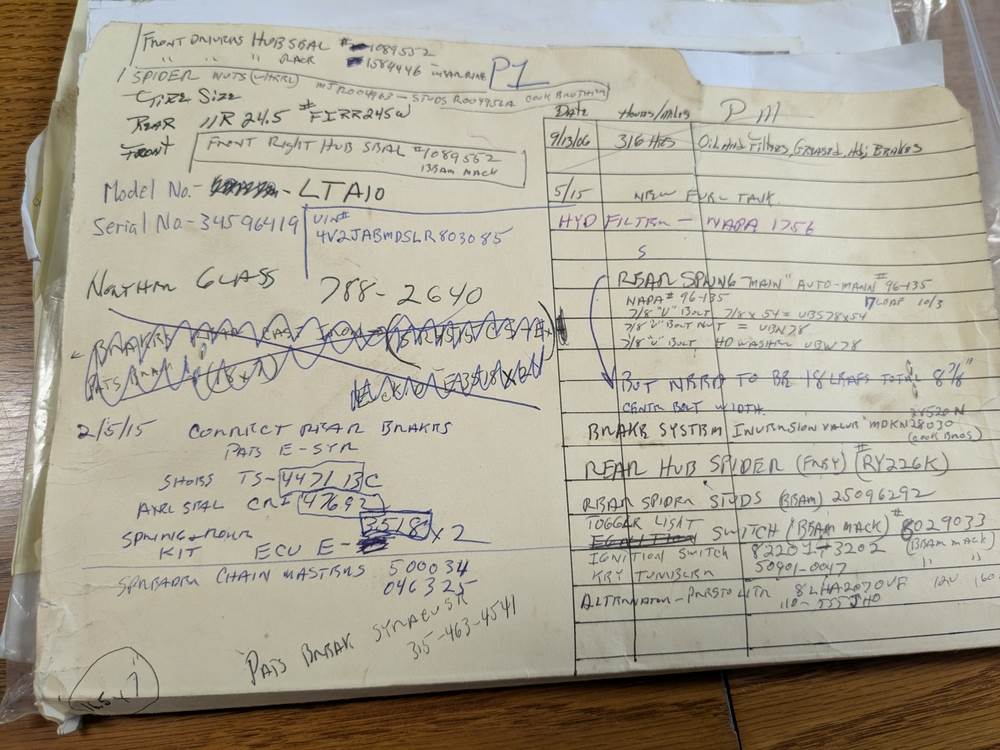 FRONT DRIVERS HUB SEAL # 1089552
" " " REAR 1584446 P1
SPIDER NUTS (WHEEL)
TIRE SIZE
REAR 11R 24.5 # FIRR245W
FRONT
FRONT RIGHT HUB SEAL #1089552
BEAM MACK
Model No. - LTA10
Serial No - 34596419
VIN#
4V2JABMDSLR803085
NORTHERN GLASS 788-2640
2/5/15 CORRECT REAR BRAKES
PATS E-SYR
SHOES TS-4471 13C
AXEL SEAL CRI 47692
SPRING + ROLLER KIT ECU E- 3518 x 2
SPREADER CHAIN MASTERS 500034
046325
PATS BREAK SYRACUSE
315-463-4541
DATE HOURS/MILES P M
9/13/06 316 HRS OIL AND FILTERS, GREASED, ADJ BRAKES
5/15 NEW FUEL TANK
HYD FILTER - NAPA 1756
S
REAR SPRING "MAIN" AUTO-MANN # 96-135
NAPA # 96-135 7 LEAF 10/3
7/8 "U" BOLT 7/8 x 54 = UBS78x54
7/8 "U" BOLT NUT = UBN78
7/8 "U" BOLT HD WASHER UBW78
BUT NEED TO BE 18 LEAFS TOTAL 8 7/8"
CENTER BOLT WIDTH
BRAKE SYSTEM INVERSION VALVE MDKN28030
(COOK BROS)
REAR HUB SPIDER (FNBY) (#RY226K)
REAR SPIDER STUDS (BEAM) 25096292
TOGGLE LIGHT SWITCH (BEAM MACK) # 8029033
IGNITION SWITCH 82201-73202 (BEAM MACK)
KEY TUMBLER 50901-0047 " "
ALTERNATOR - PRESTOLITE 8LHA2070VF 12V 160
110-555JHO